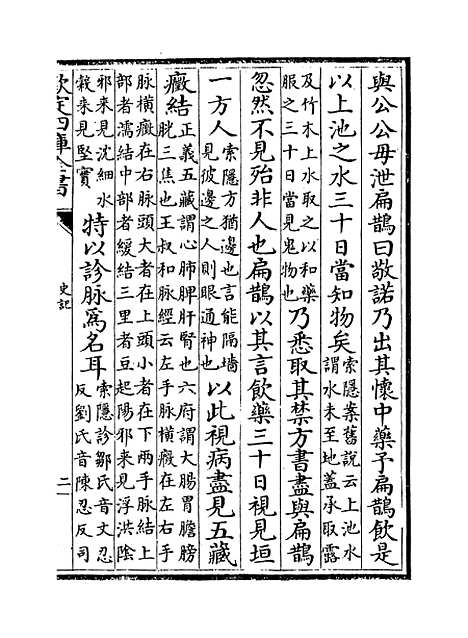 與公公毋泄扁鵲曰敬諾乃出其懷中藥予扁鵲飲是
以上池之水三十日當知物矣
索隱案舊說云上池水
謂水未至地蓋承取露
及竹木上水取之以和藥
服之三十日當見鬼物也
乃悉取其禁方書盡與扁鵲
忽然不見殆非人也扁鵲以其言飲藥三十日視見垣
一方人
索隱方猶邊也言能隔墻
見彼邊之人則眼通神也
以此視病盡見五藏
癥結
正義五藏謂心肺脾肝腎也六府謂大腸胃膽膀
胱三焦也王叔和脉經云左手脉橫癥在左右手
脉橫癥在右脉頭大者在上頭小者在下兩手脉結上
部者濡結中部者緩結三里者豆起陽邪来見浮洪陰
邪来見沈細水
榖来見堅實
特以診脉爲名耳
索隱診鄒氏音丈忍
反劉氏音陳忍反司
欽定四庫全書
史記
二